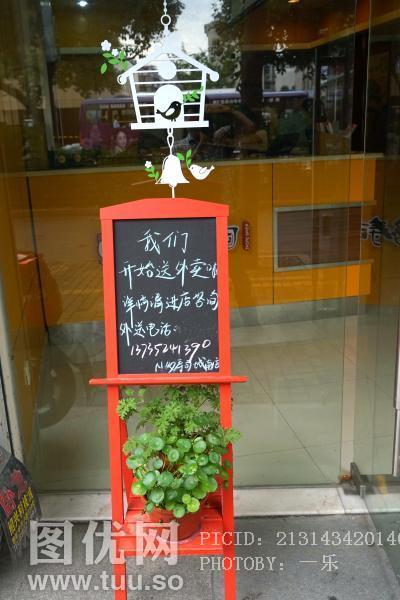 我们
开始送外卖啦
详情请进店咨询
外送电话:
13735241390
图优网
www.tuu.so
PICID: 213143420140
PHOTOBY: 一乐